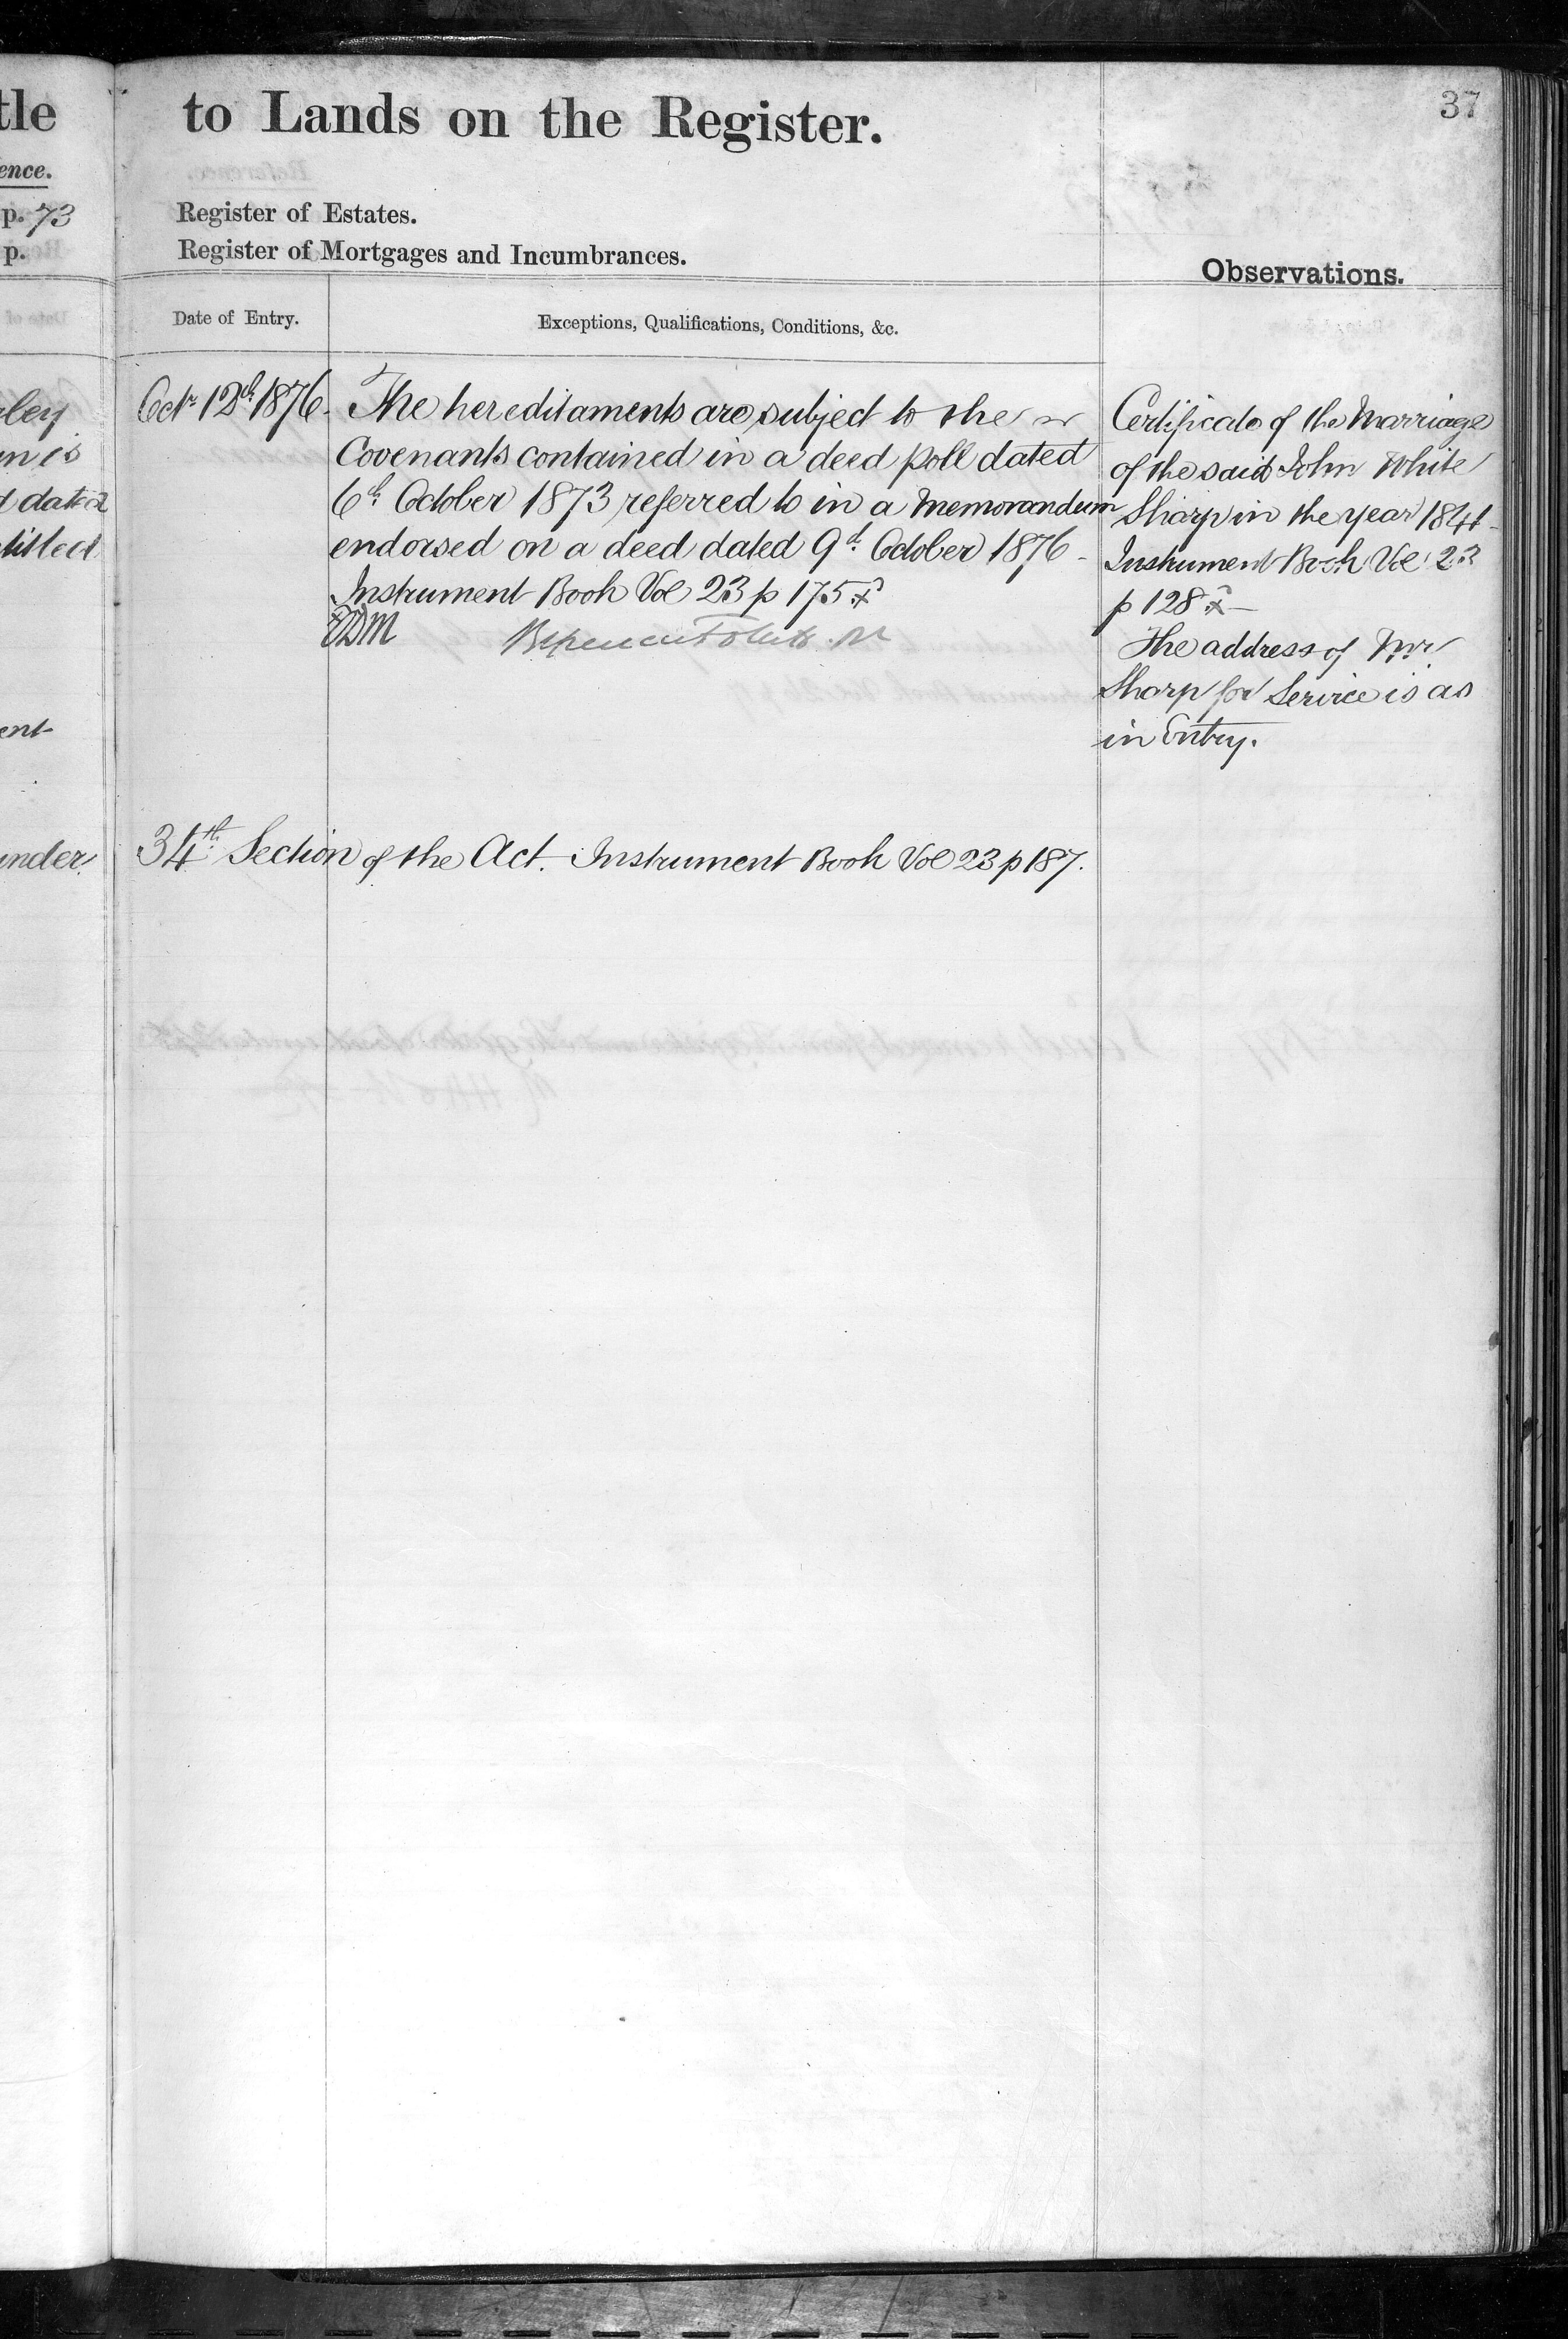 37
tle
to Lands on the Register.
ence.
p. 73
Register of Estates.
p.
Register of Mortgages and Incumbrances.
Observations.
Date of Entry.
Exceptions, Qualifications, Conditions, &c.
Octr 12th 1876.
The hereditaments are subject to the
Covenants contained in a deed poll dated
6th October 1873 referred to in a Memorandum
endorsed on a deed dated 9th October 1876 -
Instrument Book Vol 23 p 175
Certificate of the Marriage
of the said John White
Sharp in the year 1844 -
Instrument Book Vol 23
p 128
The address of Mr
Sharp for Service is as
in Entry.
ley
is
d dated
titled
ent
under
34th Section of the Act. Instrument Book Vol 23 p 187.